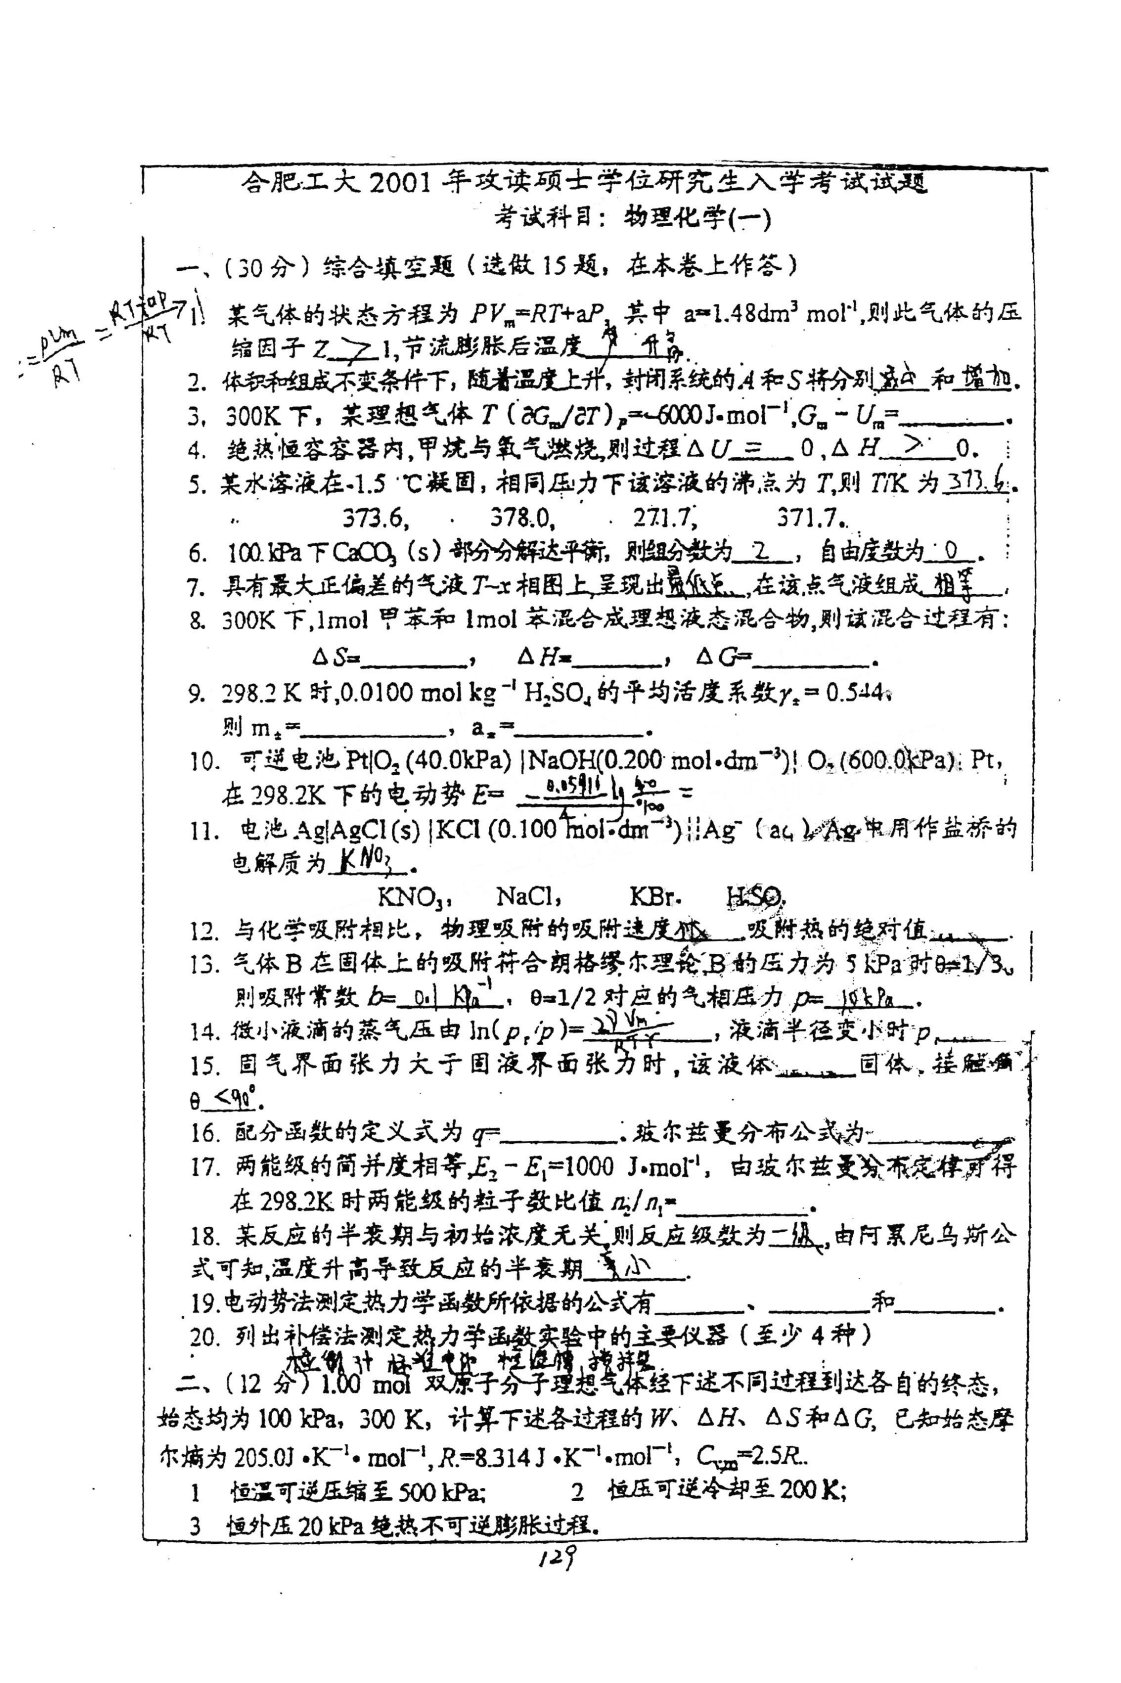 合肥工大2001年攻读硕士学位研究生入学考试试题
考试科目：物理化学(一)
一、(30分)综合填空题(选做15题，在本卷上作答)
∴=PVm/RT = RT+aP/RT >1
1. 某气体的状态方程为 PVm=RT+aP，其中 a=1.48dm³ mol⁻¹,则此气体的压
缩因子 Z > 1,节流膨胀后温度 升高.
2. 体积和组成不变条件下，随着温度上升，封闭系统的A和S将分别减少和增加.
3. 300K下，某理想气体 T(∂Gm/∂T)p=-6000J·mol⁻¹,Gm-Um=______.
4. 绝热恒容容器内,甲烷与氧气燃烧,则过程ΔU = 0,ΔH > 0.
5. 某水溶液在-1.5℃凝固，相同压力下该溶液的沸点为T,则T/K为373.6.
373.6, 378.0, 271.7, 371.7.
6. 100kPa下CaCO₃(s)部分分解达平衡，则组分数为 2 ，自由度数为 0 .
7. 具有最大正偏差的气液T~x相图上,呈现出最低点,在该点气液组成 相等 ,
8. 300K下,1mol甲苯和1mol苯混合成理想液态混合物,则该混合过程有:
ΔS=______, ΔH=______, ΔG=______.
9. 298.2K时,0.0100 mol kg⁻¹ H₂SO₄的平均活度系数γ±=0.544,
则 m±=______, a±=______.
10. 可逆电池 Pt|O₂(40.0kPa)|NaOH(0.200 mol·dm⁻³)|O₂(600.0kPa)|Pt,
在298.2K下的电动势E=
11. 电池Ag|AgCl(s)|KCl(0.100 mol·dm⁻³)||Ag⁺(aq)|Ag中用作盐桥的
电解质为 KNO₃ .
KNO₃, NaCl, KBr. H₂SO₄
12. 与化学吸附相比，物理吸附的吸附速度 快 吸附热的绝对值
13. 气体B在固体上的吸附符合朗格缪尔理论,B的压力为5kPa时θ=1/3,
则吸附常数 b= 0.1 kPa⁻¹ , θ=1/2对应的气相压力 p= 10kPa .
14. 微小液滴的蒸气压由 ln(pr/p)= 2γVm/RTr ,液滴半径变小时pr______
15. 固气界面张力大于固液界面张力时,该液体______固体,接触角
θ <90°.
16. 配分函数的定义式为q=______.玻尔兹曼分布公式为______
17. 两能级的简并度相等,E₂-E₁=1000 J·mol⁻¹, 由玻尔兹曼分布定律可得
在298.2K时两能级的粒子数比值n₂/n₁=______.
18. 某反应的半衰期与初始浓度无关,则反应级数为 一级 ,由阿累尼乌斯公
式可知,温度升高导致反应的半衰期 变小 .
19.电动势法测定热力学函数所依据的公式有______、______和______.
20. 列出补偿法测定热力学函数实验中的主要仪器(至少4种)
检流计 标准电池 恒温槽 搅拌器
二、(12分) 1.00 mol 双原子分子理想气体经下述不同过程到达各自的终态，
始态均为100 kPa, 300 K, 计算下述各过程的W、ΔH、ΔS和ΔG, 已知始态摩
尔熵为205.0J·K⁻¹·mol⁻¹, R=8.314J·K⁻¹·mol⁻¹, Cv,m=2.5R.
1 恒温可逆压缩至500 kPa; 2 恒压可逆冷却至200K;
3 恒外压20kPa绝热不可逆膨胀过程.
129